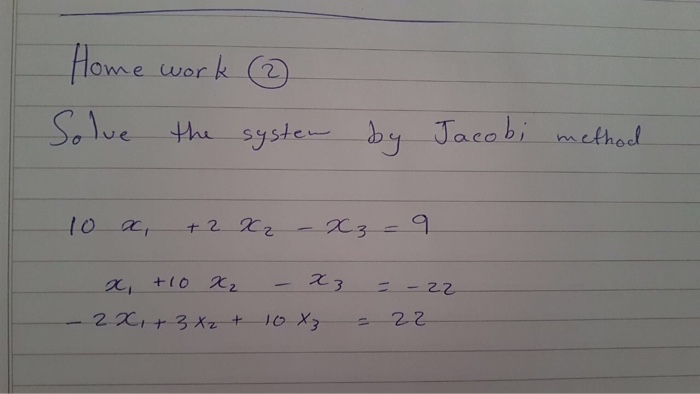 Home work ②
Solve the system by Jacobi method
10 x₁ + 2 x₂ - x₃ = 9
x₁ + 10 x₂ - x₃ = - 22
- 2x₁ + 3x₂ + 10 x₃ = 22